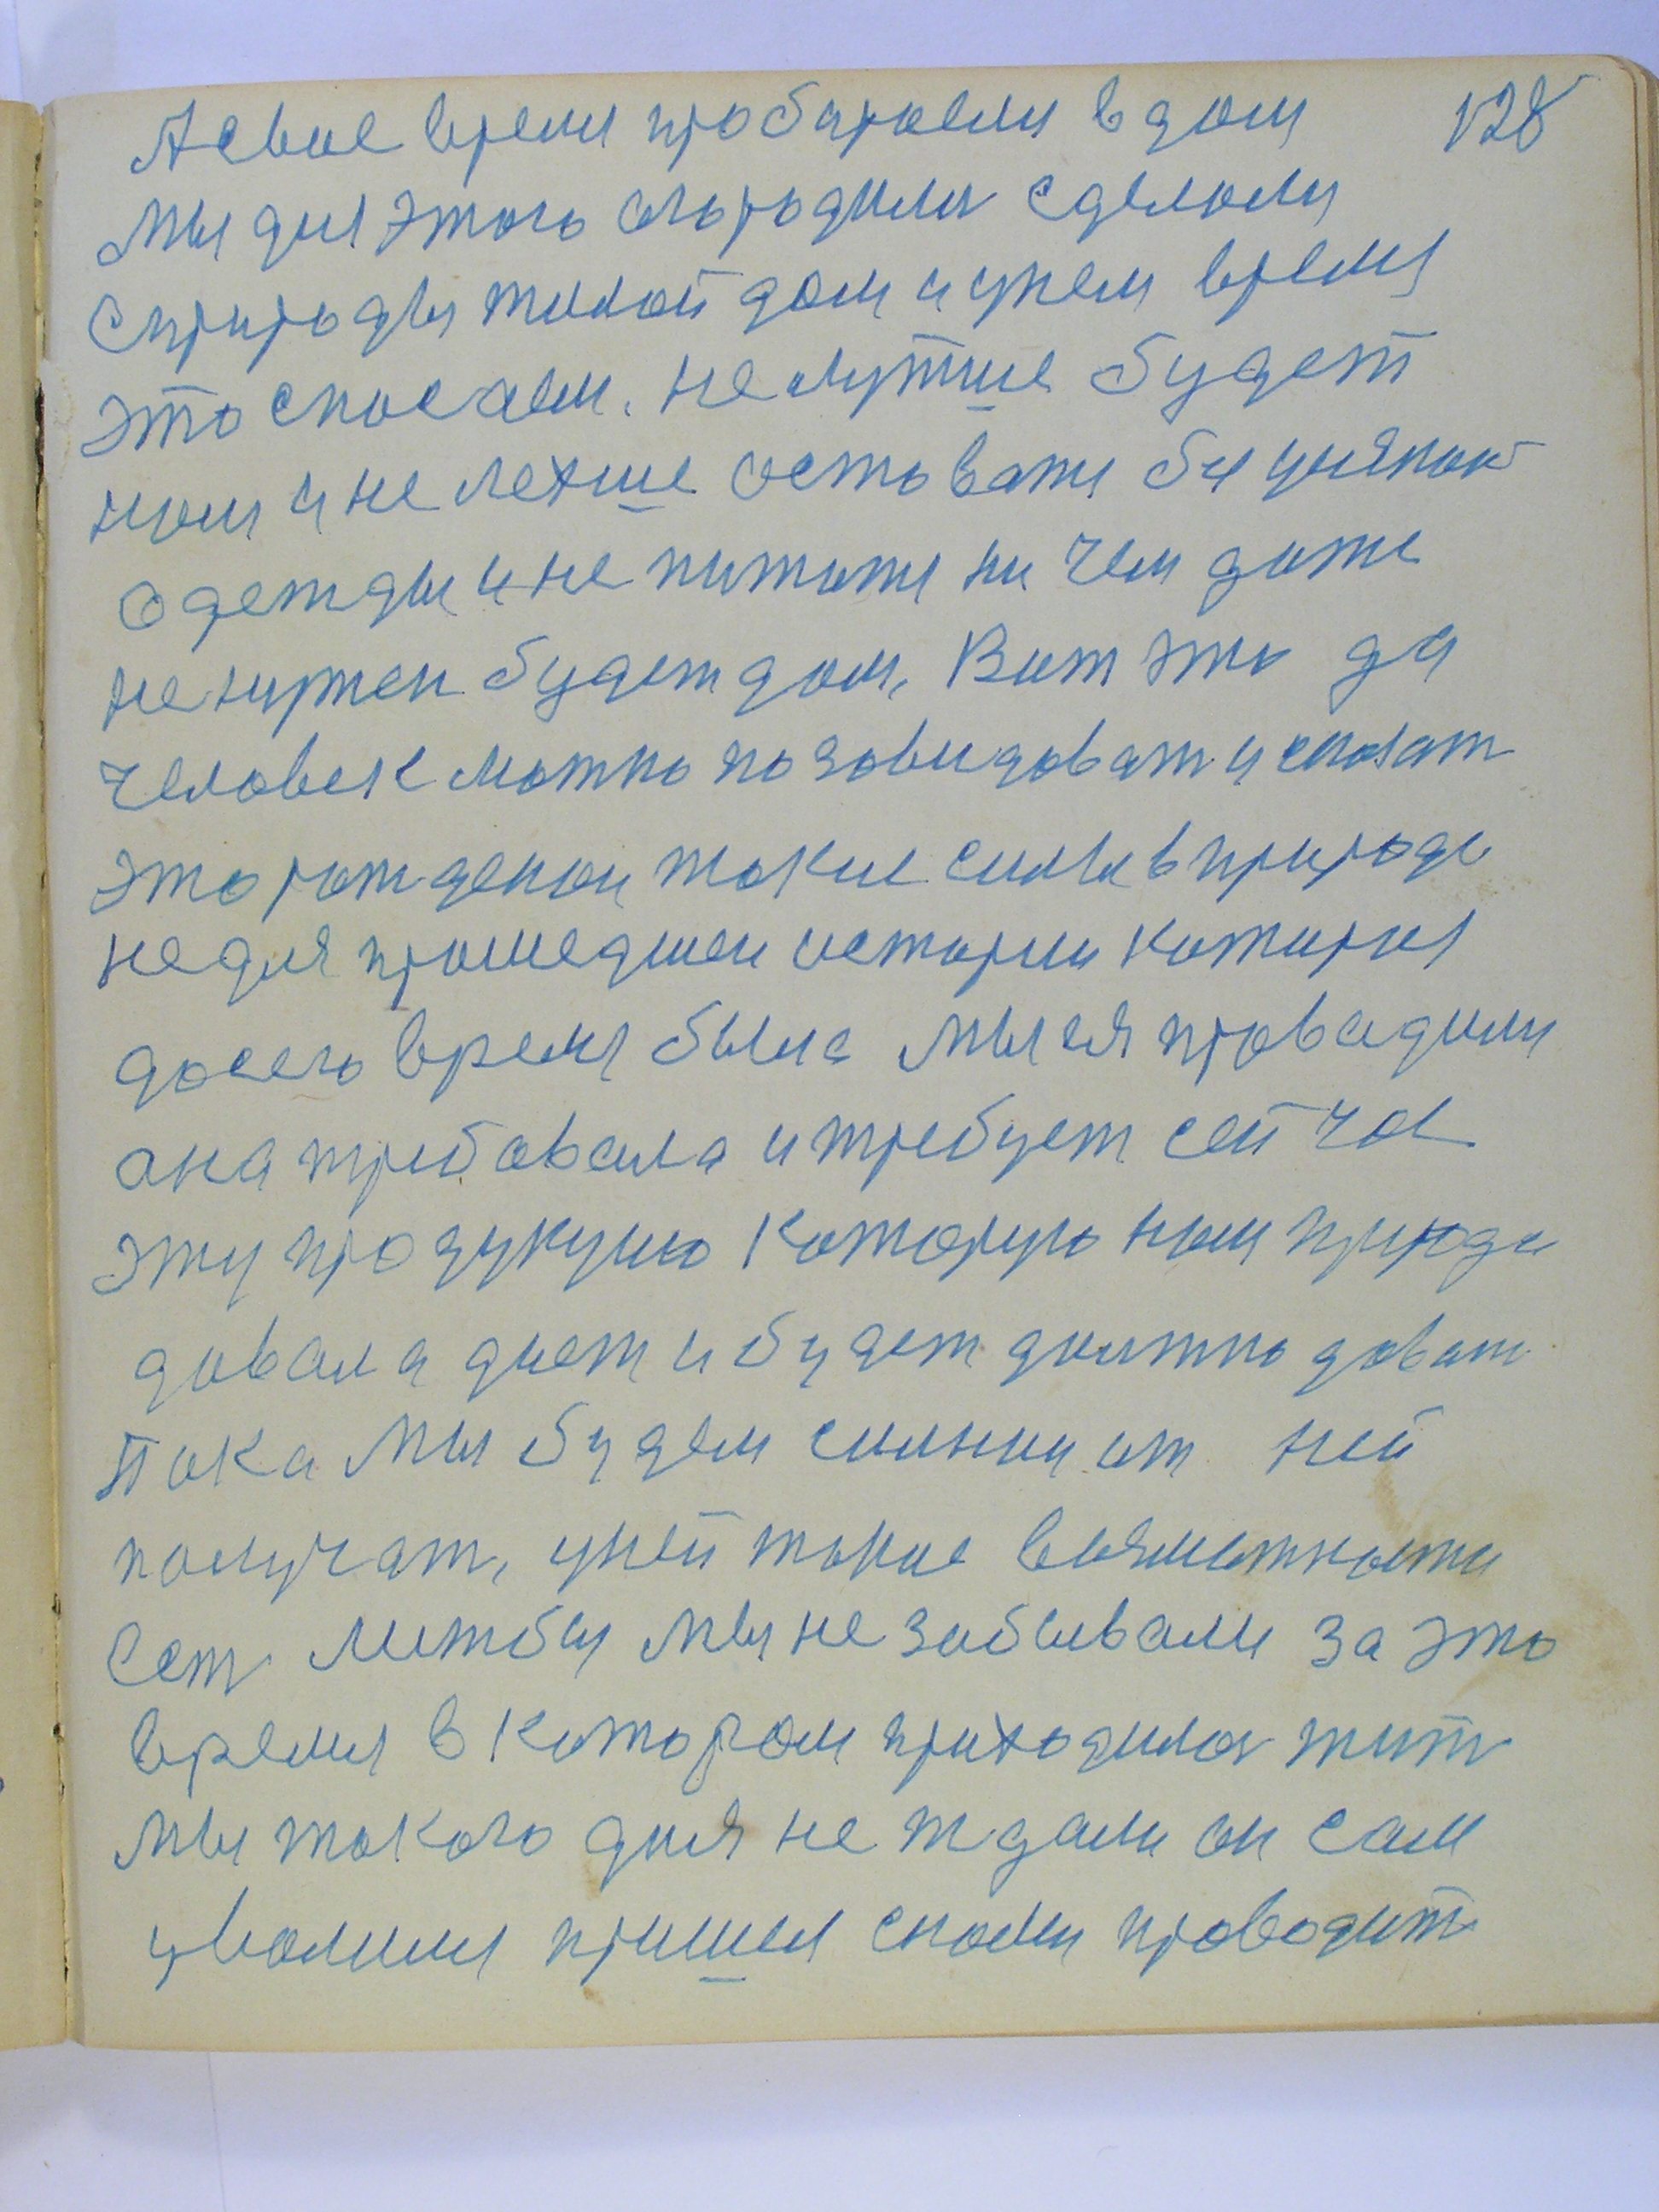 А свое время пробираемся в дом 128
мы для этого огородили сделали
с природы такой дом и унем время
это спосаем. не лутше будет
нам и не лехше оставатся без уняких
одежды и не питатя ни чем даже
не нужен будет дом, Вот это да
человек можно позавидоват и сказат
это рожденои такие силы в природе
не для прошедшеи истории которая
досего время была мы ея проводили
она требовала и требует сейчас
эту продукцию которую нам природа
давала дает и будет должна давать
Пока мы будем силнии от ней
получат, уней такие возможности
ест мит бы мы не забывали за это
время в котором приходилос жит
мы такого дня не ждали он сам
явился пришел с нами проводит